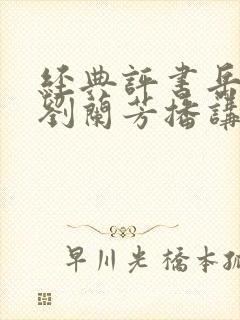 經典評書岳
劉蘭芳播講
早川光橋本孤